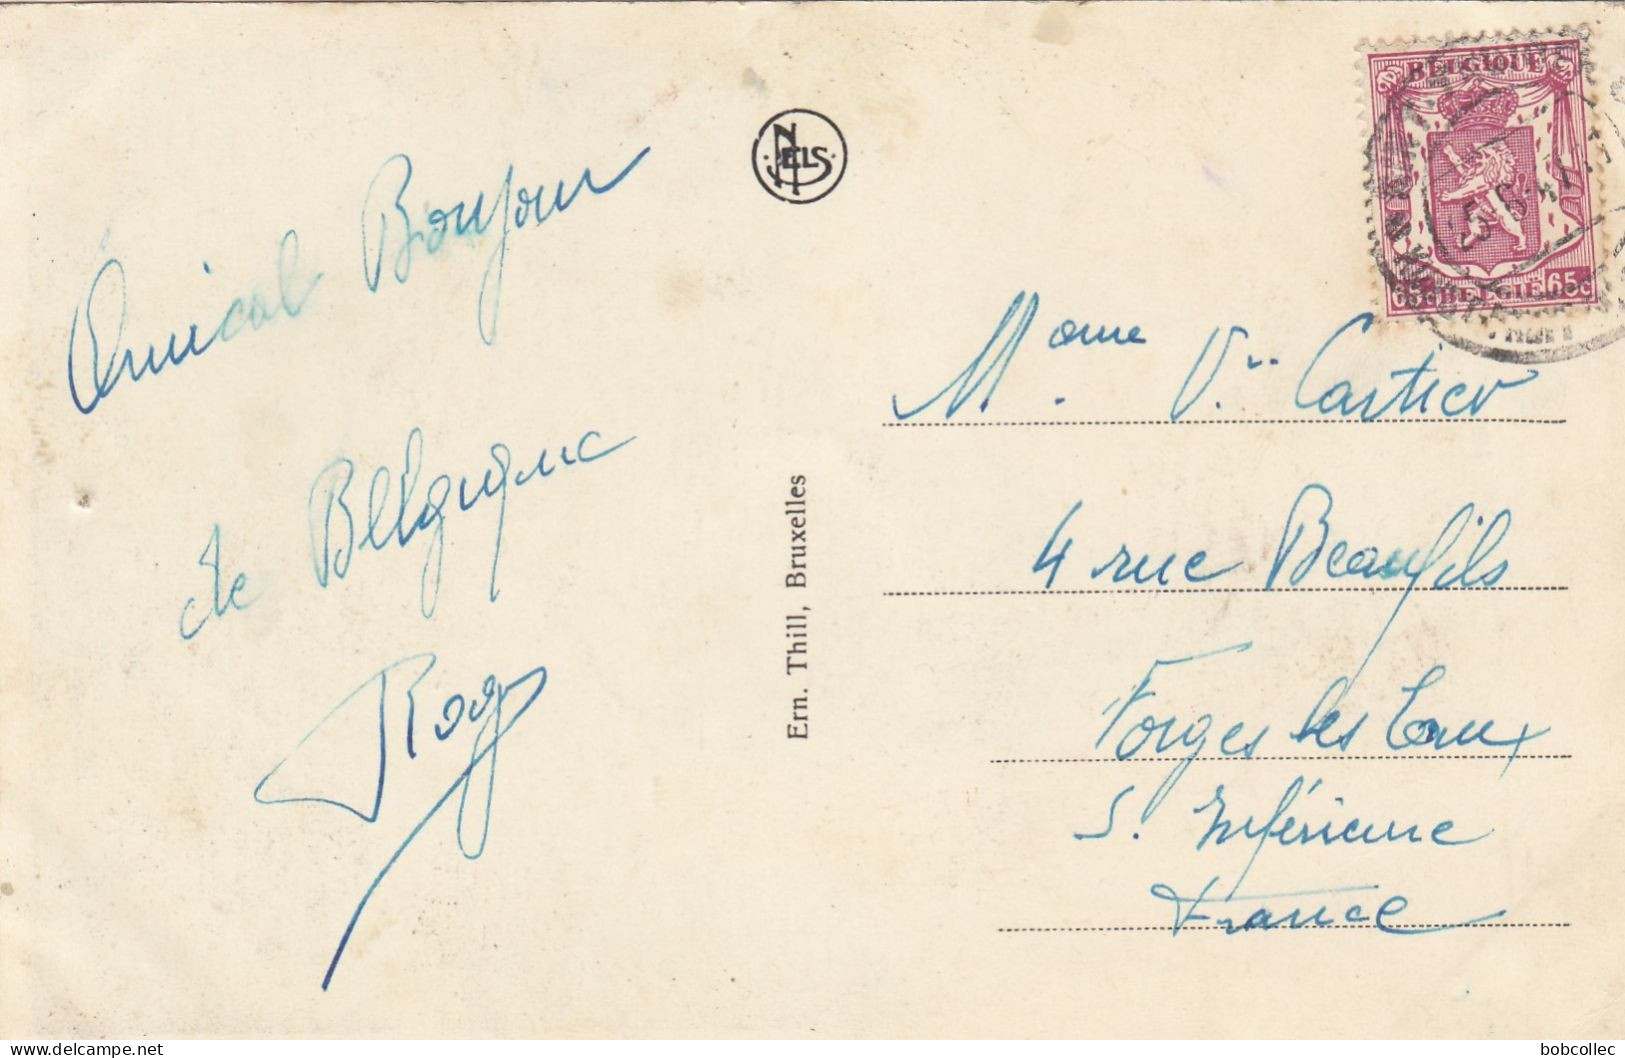 Amical Bonjour
de Belgique
Rog
NELS
Ern. Thill, Bruxelles
BELGIQUE
65c BELGIË 65c
Madame Vve Cartier
4 rue Beaufils
Forges les Eaux
S. Inférieure
France
delcampe.net
bobcollec